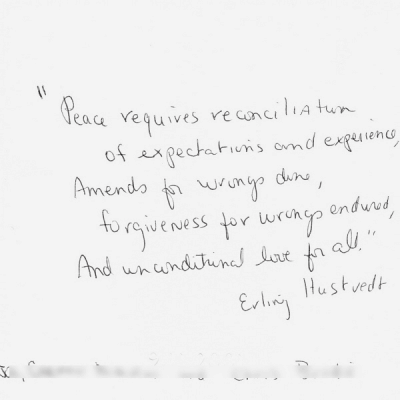 "Peace requires reconciliation
of expectations and experience,
Amends for wrongs done,
forgiveness for wrongs endured,
And unconditional love for all."
Erling Hustvedt